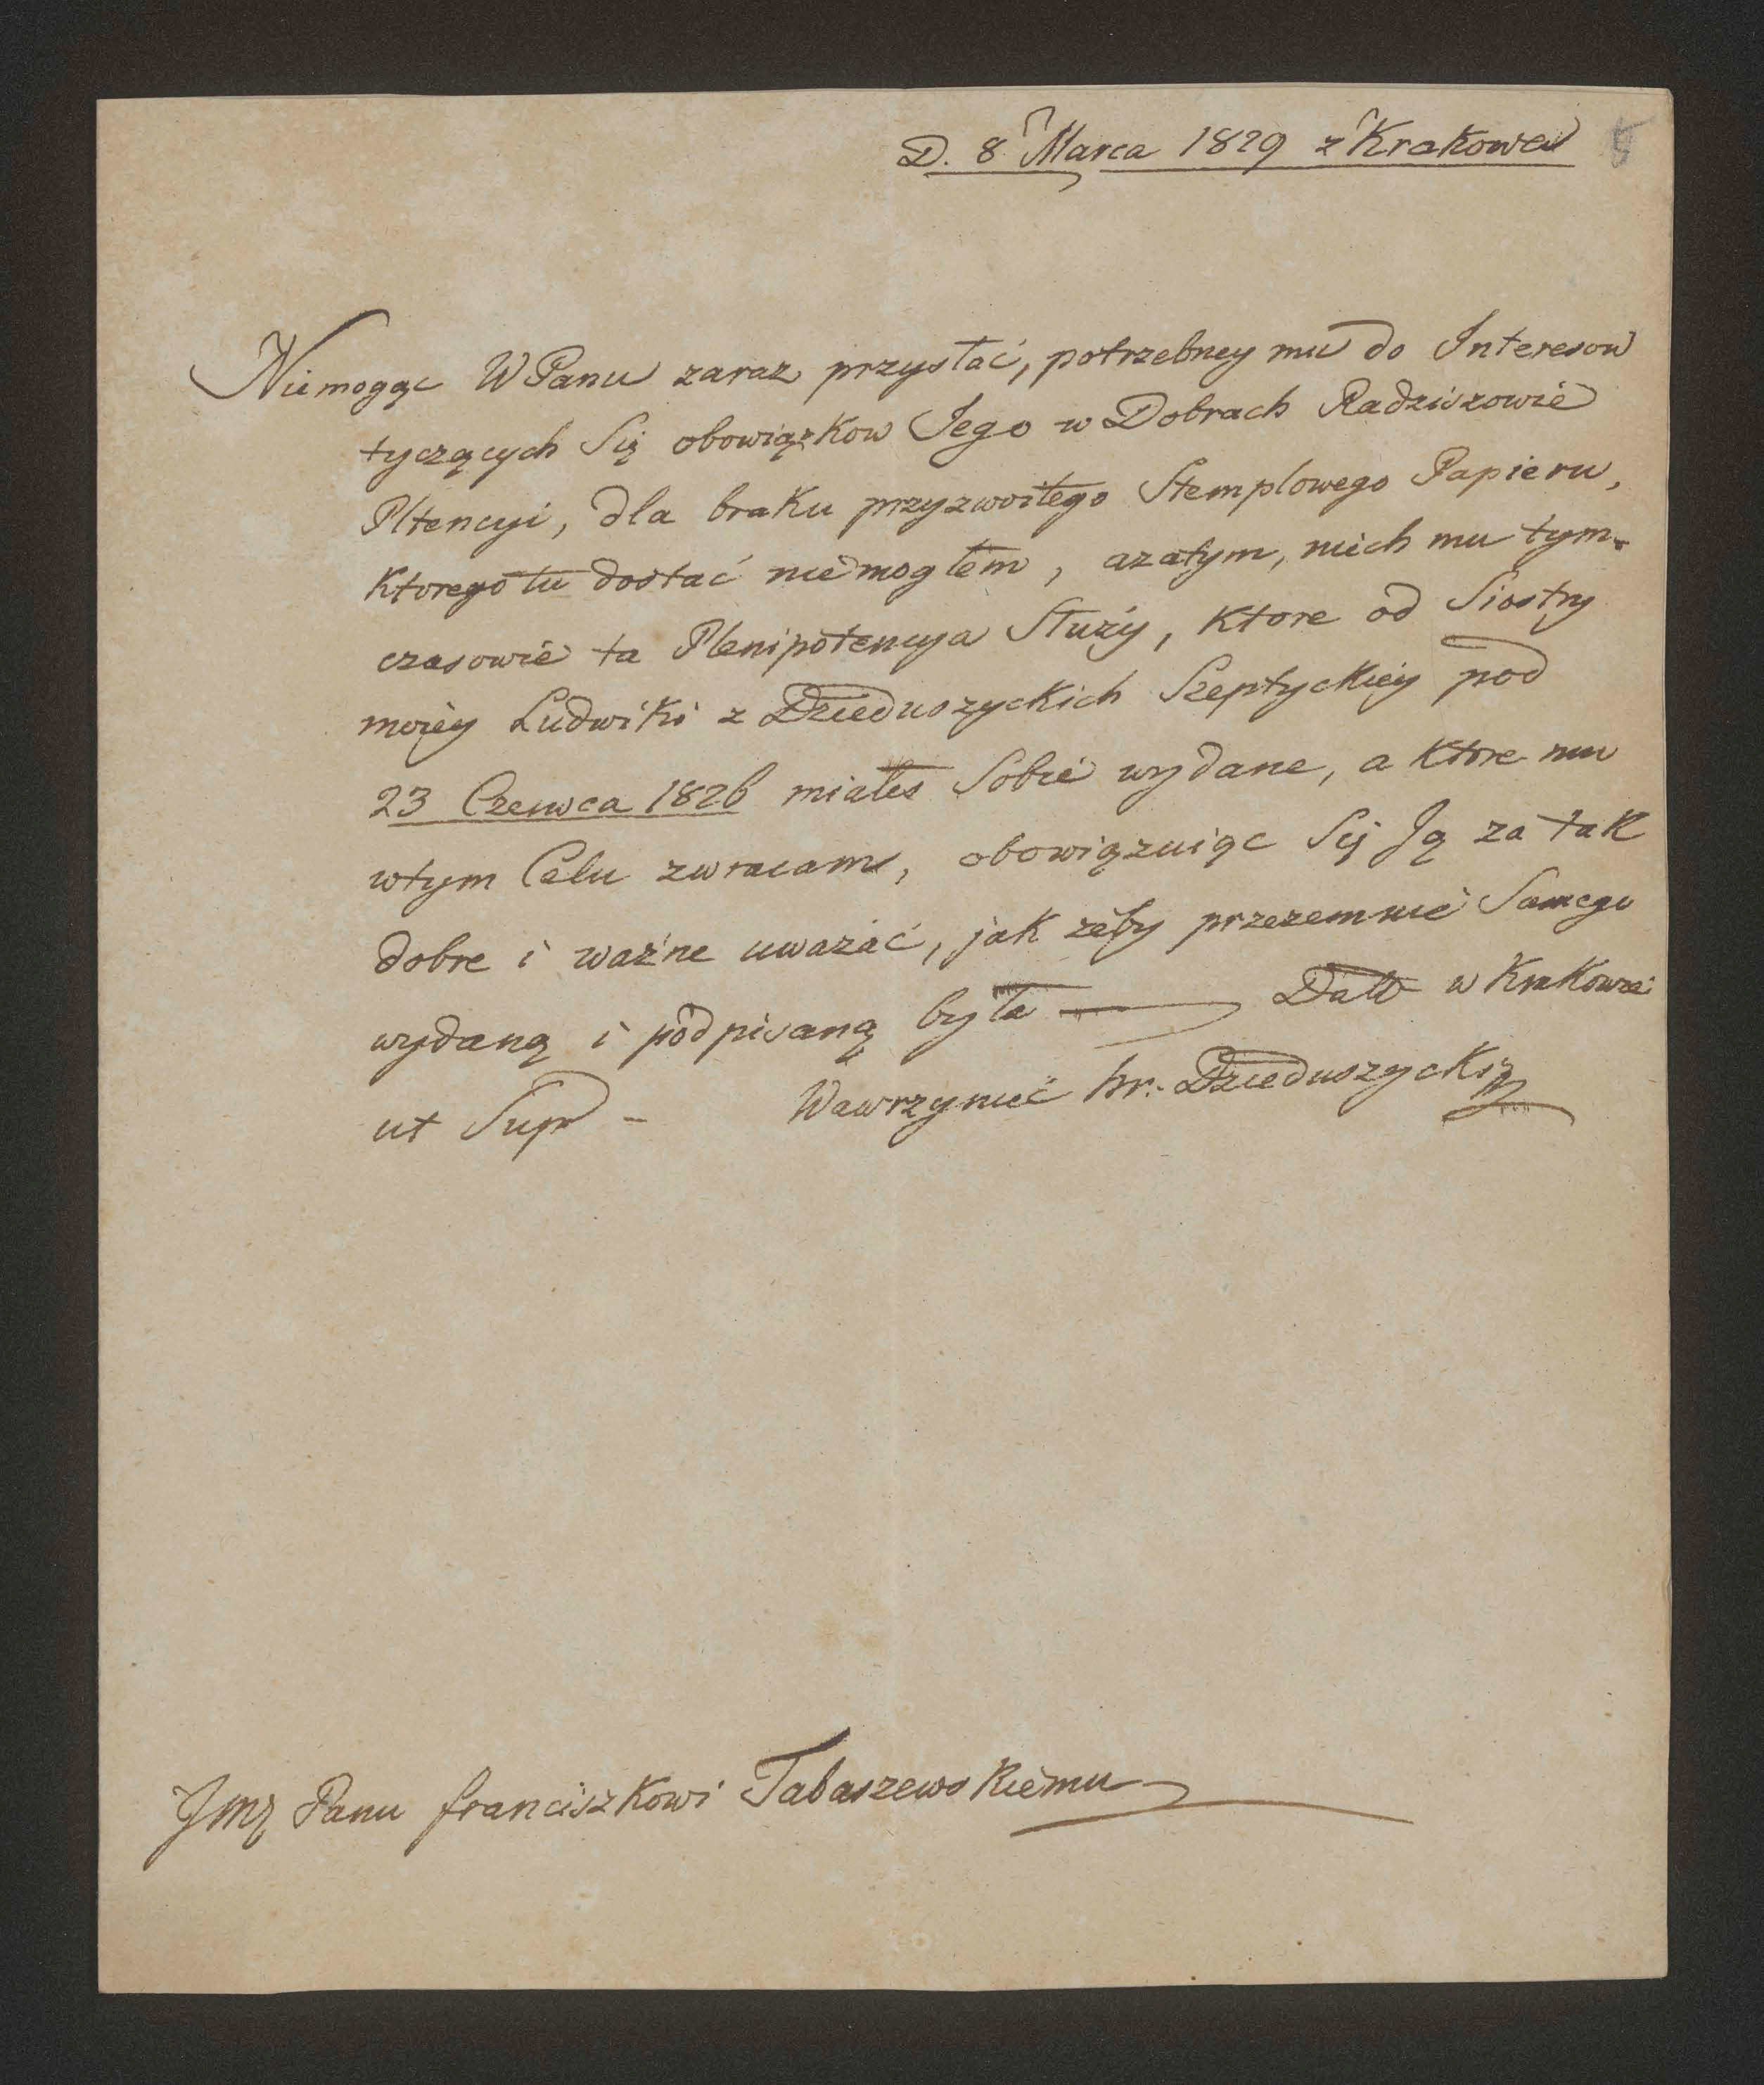 D. 8 Marca 1829 z Krakowa
5
Niemogąc WPanu zaraz przysłać, potrzebney mu do Interesow
tyczących Się obowiązkow Jego w Dobrach Radziszowie
Pltencyi, dla braku przyzwoitego Stemplowego Papieru,
Ktorego tu dostać niemogłem, azatym, niech mu tym-
czasowie ta Plenipotencya Służy, Ktore od Siostry
moiey Ludwiki z Dzieduszyckich Szeptyckiey pod
23 Czerwca 1826 miałes Sobie wydane, a Ktore mu
wtym Celu zwracam, obowiązuiąc Się Ją za tak
dobre i ważne uważać, jak żeby przezemnie Samego
wydaną i podpisaną była — Datt w Krakowie
ut Supr - Wawrzyniec hr. Dzieduszycki
Jmę Panu franciszkowi Tabaszewskiemu